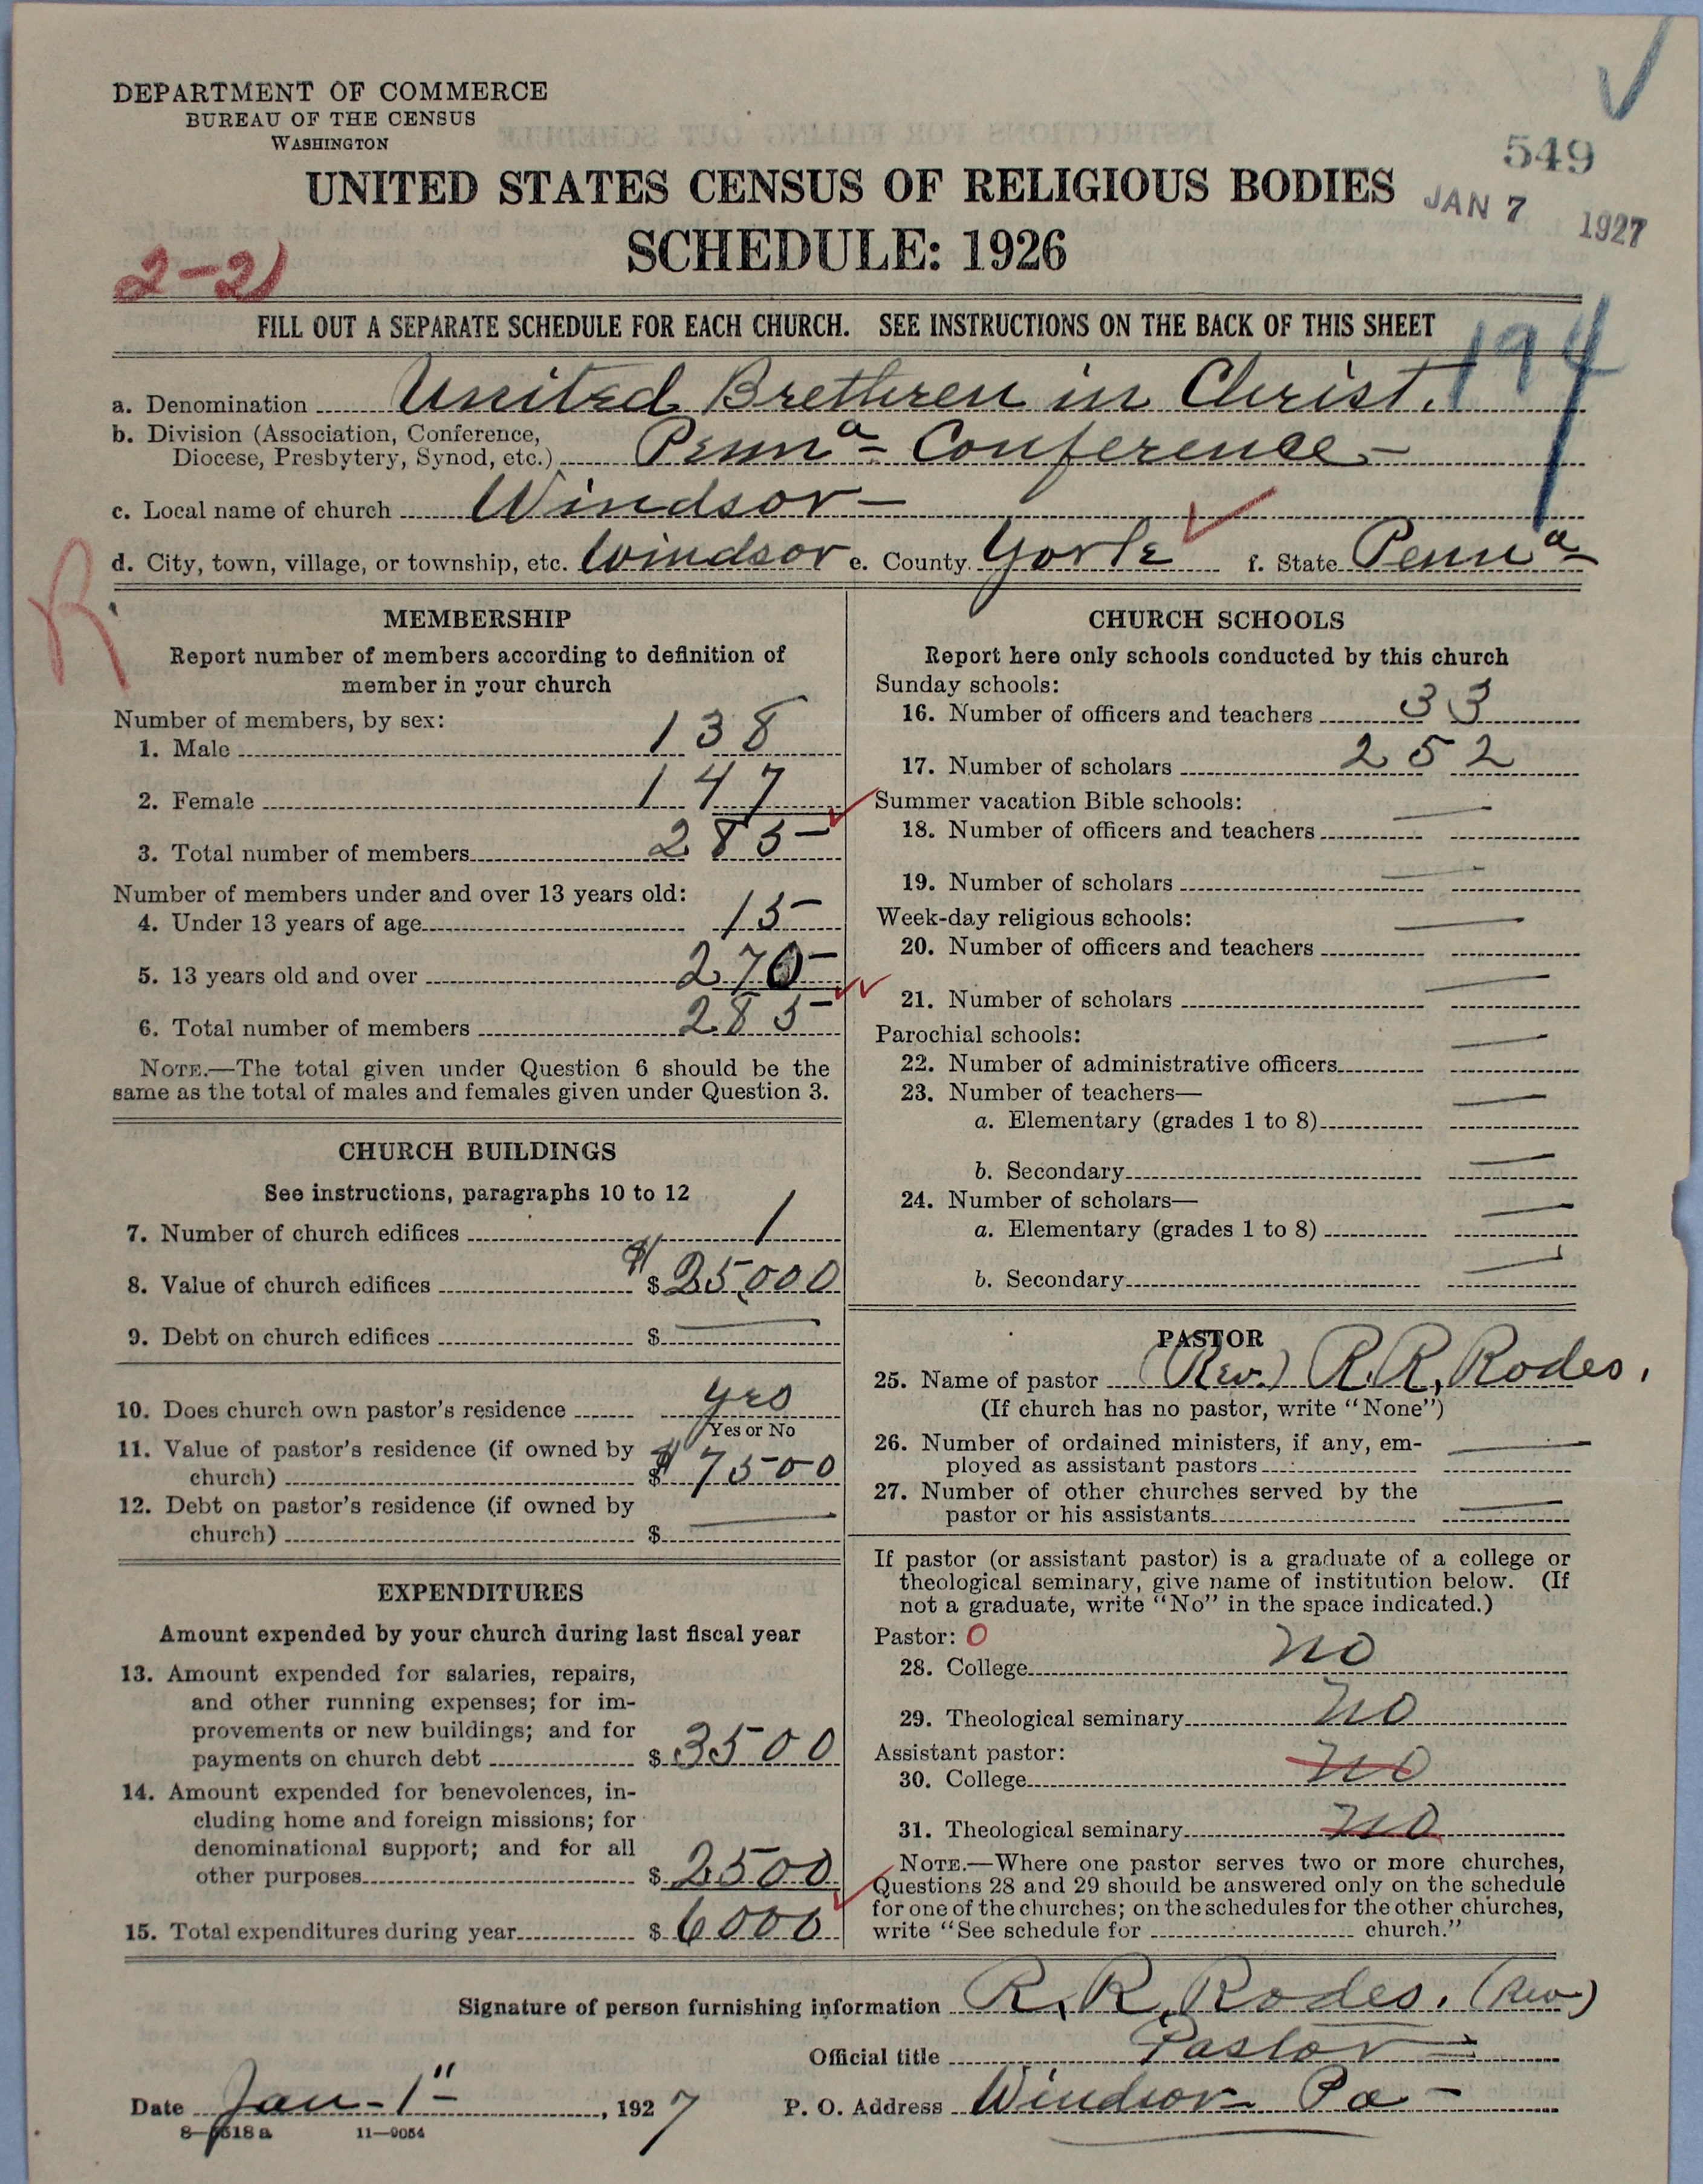 DEPARTMENT OF COMMERCE
BUREAU OF THE CENSUS
WASHINGTON
549
UNITED STATES CENSUS OF RELIGIOUS BODIES
JAN 7 1927
SCHEDULE: 1926
2-21
FILL OUT A SEPARATE SCHEDULE FOR EACH CHURCH. SEE INSTRUCTIONS ON THE BACK OF THIS SHEET
194
a. Denomination United Brethren in Christ.
b. Division (Association, Conference,
Diocese, Presbytery, Synod, etc.) Penna- Conference-
c. Local name of church Windsor-
d. City, town, village, or township, etc. Windsor e. County York f. State Penna-
R
MEMBERSHIP
Report number of members according to definition of
member in your church
Number of members, by sex:
1. Male 138
2. Female 147
3. Total number of members 285
Number of members under and over 13 years old:
4. Under 13 years of age 15
5. 13 years old and over 270
6. Total number of members 285
NOTE.—The total given under Question 6 should be the
same as the total of males and females given under Question 3.
CHURCH BUILDINGS
See instructions, paragraphs 10 to 12
7. Number of church edifices 1
8. Value of church edifices $ $25,000
9. Debt on church edifices $ —
10. Does church own pastor's residence yes
Yes or No
11. Value of pastor's residence (if owned by
church) $ $7500
12. Debt on pastor's residence (if owned by
church) $ —
EXPENDITURES
Amount expended by your church during last fiscal year
13. Amount expended for salaries, repairs,
and other running expenses; for im-
provements or new buildings; and for
payments on church debt $ 3500
14. Amount expended for benevolences, in-
cluding home and foreign missions; for
denominational support; and for all
other purposes $ 2500
15. Total expenditures during year $ 6000
CHURCH SCHOOLS
Report here only schools conducted by this church
Sunday schools:
16. Number of officers and teachers 33
17. Number of scholars 252
Summer vacation Bible schools:
18. Number of officers and teachers —
19. Number of scholars —
Week-day religious schools:
20. Number of officers and teachers —
21. Number of scholars —
Parochial schools:
22. Number of administrative officers —
23. Number of teachers—
a. Elementary (grades 1 to 8) —
b. Secondary —
24. Number of scholars—
a. Elementary (grades 1 to 8) —
b. Secondary —
PASTOR
25. Name of pastor (Rev.) R.R. Rodes.
(If church has no pastor, write "None")
26. Number of ordained ministers, if any, em-
ployed as assistant pastors —
27. Number of other churches served by the
pastor or his assistants —
If pastor (or assistant pastor) is a graduate of a college or
theological seminary, give name of institution below. (If
not a graduate, write "No" in the space indicated.)
Pastor: 0
28. College no
29. Theological seminary no
Assistant pastor:
30. College no
31. Theological seminary no
NOTE.—Where one pastor serves two or more churches,
Questions 28 and 29 should be answered only on the schedule
for one of the churches; on the schedules for the other churches,
write "See schedule for church."
Signature of person furnishing information R. R. Rodes. (Rev)
Official title Pastor
Date Jan-1"- , 1927 P. O. Address Windsor Pa-
8—5518 a 11—9054